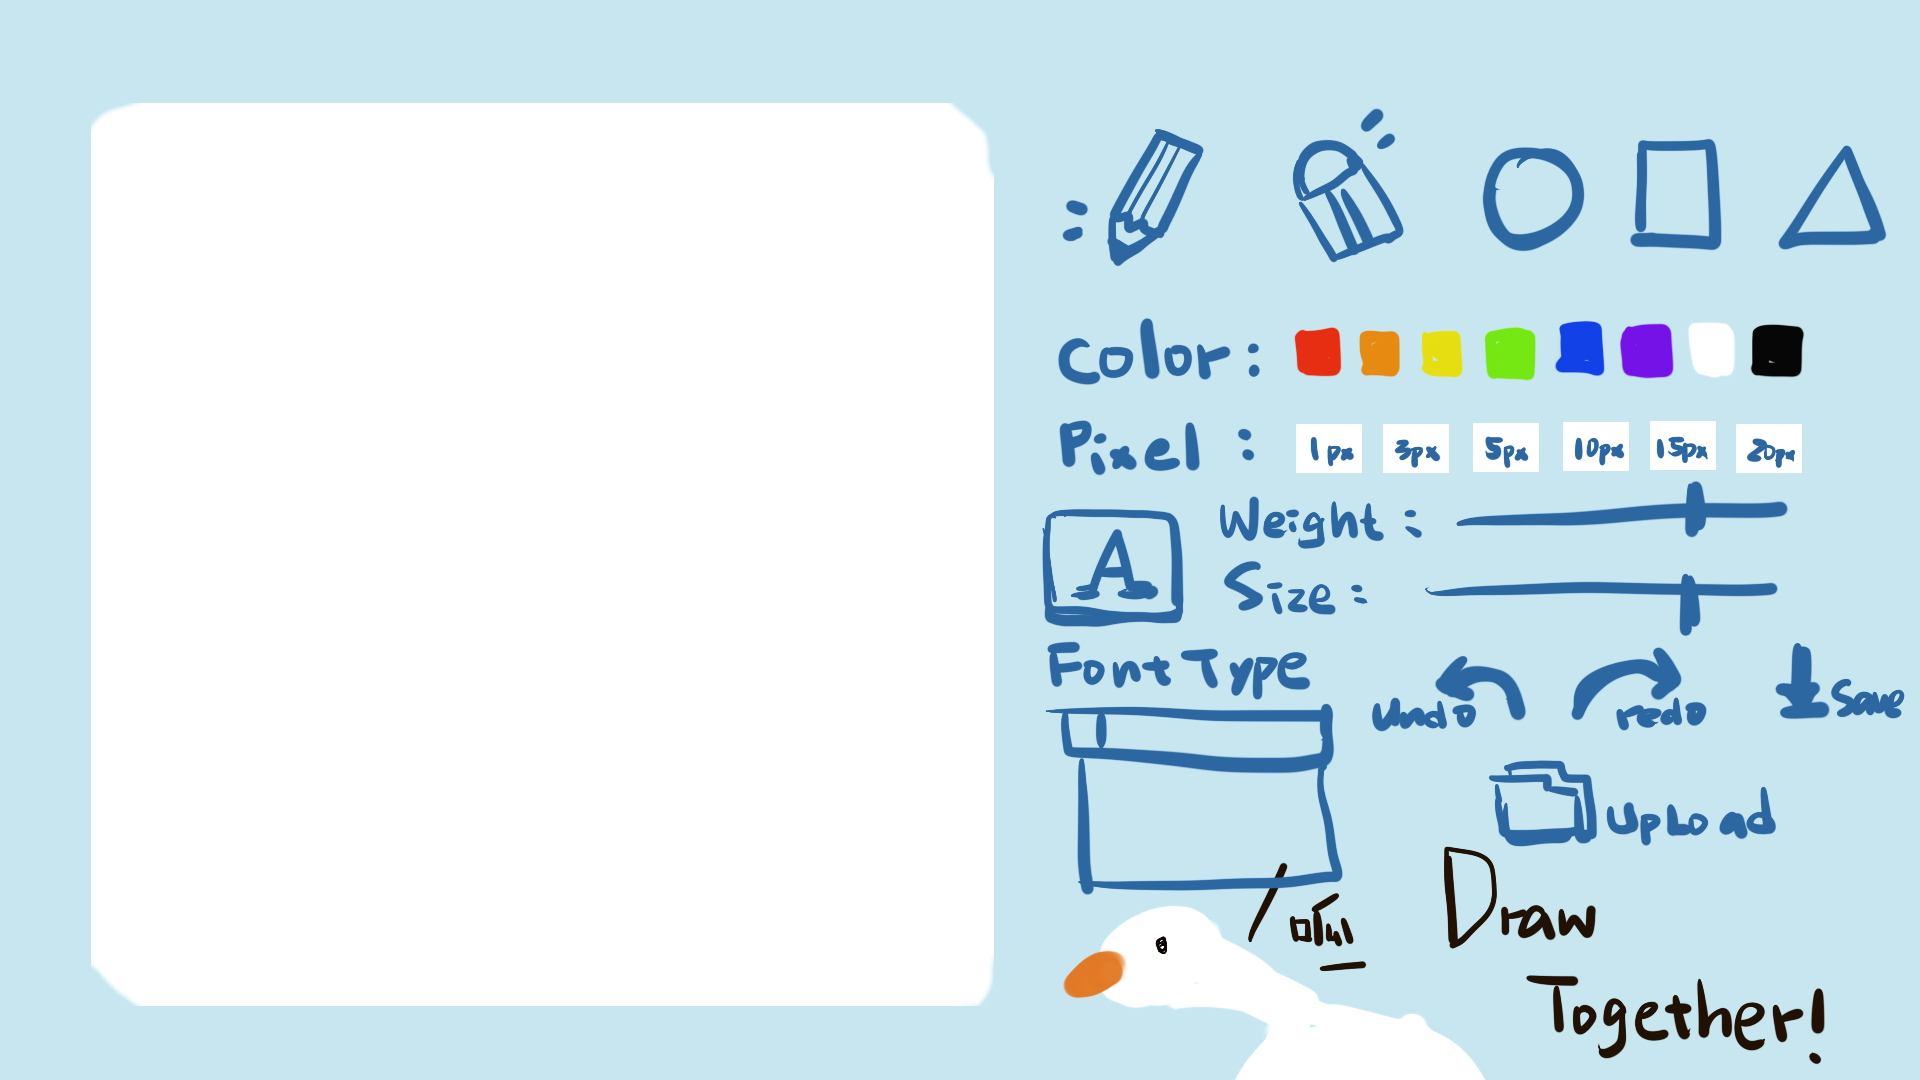 Color:
Pixel:
1px 3px 5px 10px 15px 20px
A
Weight:
Size:
Font Type
undo
redo
Save
UpLoad
Draw
Together!